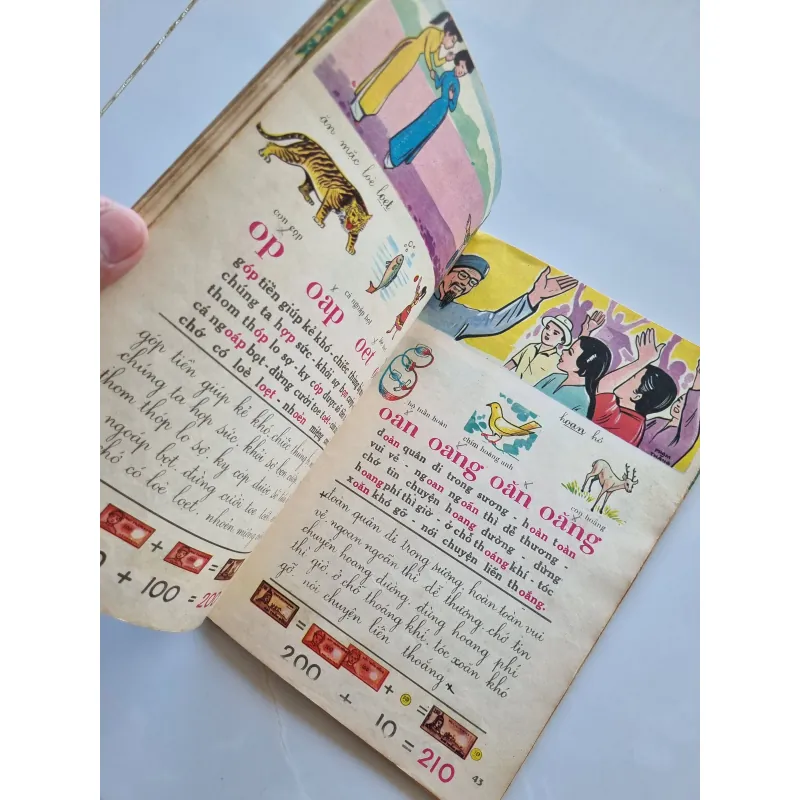 ăn mặc loè loẹt
con cọp
op
cá ngoáp bọt
oap
oẹt
góp tiền giúp kẻ khó - chiếc thùng
chúng ta hợp sức - khỏi sợ bọn
thom thóp lo sợ - ky cóp được
cá ngoáp bọt - đừng cười toe toét
chớ có loè loẹt - nhoèn miệng
góp tiền giúp kẻ khó, chiếc thùng
chúng ta hợp sức, khỏi sợ bọn
thom thóp lo sợ, ky cóp được
ngoáp bọt, đừng cười toe toét
chớ có loè loẹt, nhoẻn miệng
+ =
0 + 100 = 200
hoan hô
bộ tuần hoàn
chim hoàng anh
con hoẵng
oan oang oăn oăng
đoàn quân đi trong sương - hoàn toàn
vui vẻ - ngoan ngoãn thì dễ thương -
chớ tin chuyện hoang đường - đừng
hoang phí thì giờ - ở chỗ thoáng khí - tóc
xoăn khó gỡ - nói chuyện liên thoắng.
+ đoàn quân đi trong sương, hoàn toàn vui
vẻ, ngoan ngoãn thì dễ thương, chớ tin
chuyện hoang đường, đừng hoang phí
thì giờ, ở chỗ thoáng khí, tóc xoăn khó
gỡ, nói chuyện liên thoắng
= +
200 + 10 = 210
43